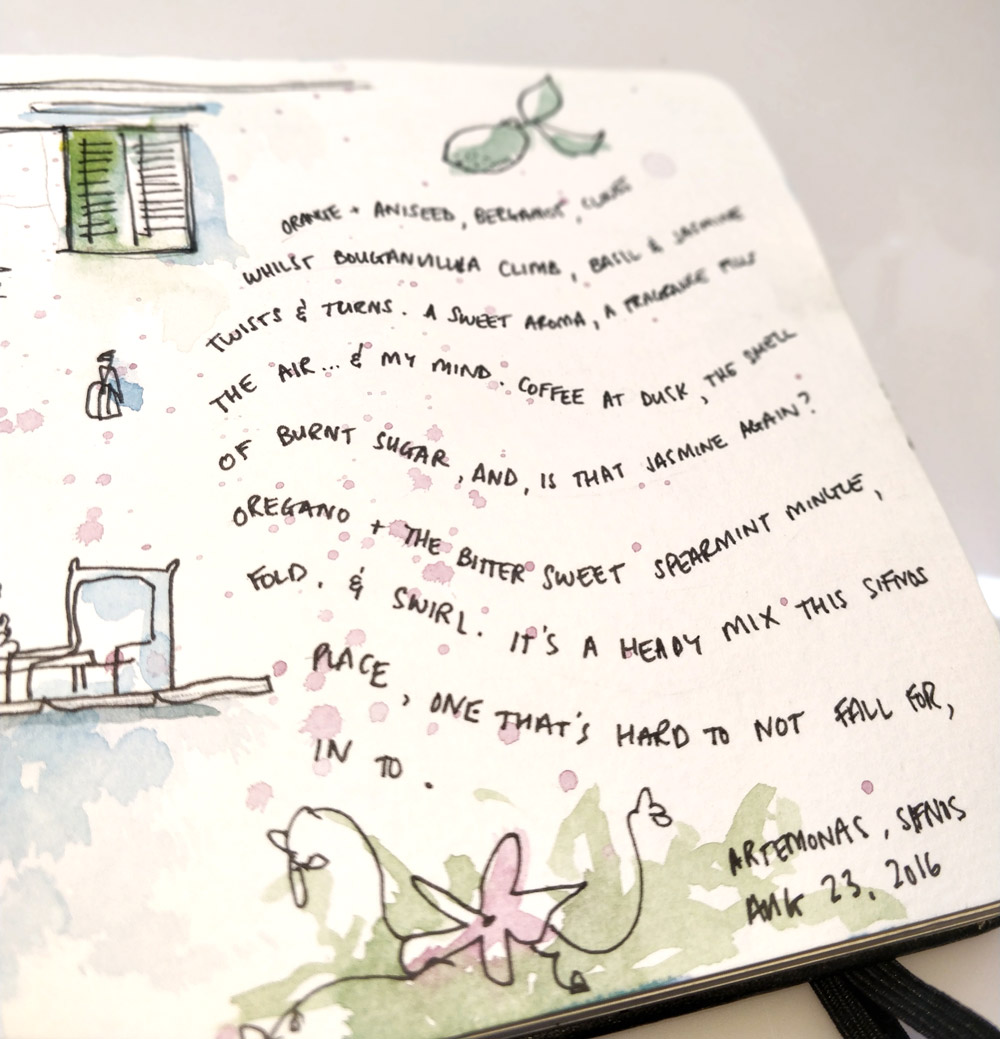 ORANGE + ANISEED, BERGAMOT, CLOVES
WHILST BOUGANVILLEA CLIMB, BASIL & JASMINE
TWISTS & TURNS. A SWEET AROMA, A FRAGRANCE FILLS
THE AIR... & MY MIND. COFFEE AT DUSK, THE SMELL
OF BURNT SUGAR, AND, IS THAT JASMINE AGAIN?
OREGANO + THE BITTER SWEET SPEARMINT MINGLE,
FOLD, & SWIRL. IT'S A HEADY MIX THIS SIFNOS
PLACE, ONE THAT'S HARD TO NOT FALL FOR,
IN TO.
ARTEMONAS, SIFNOS
AUG 23, 2016